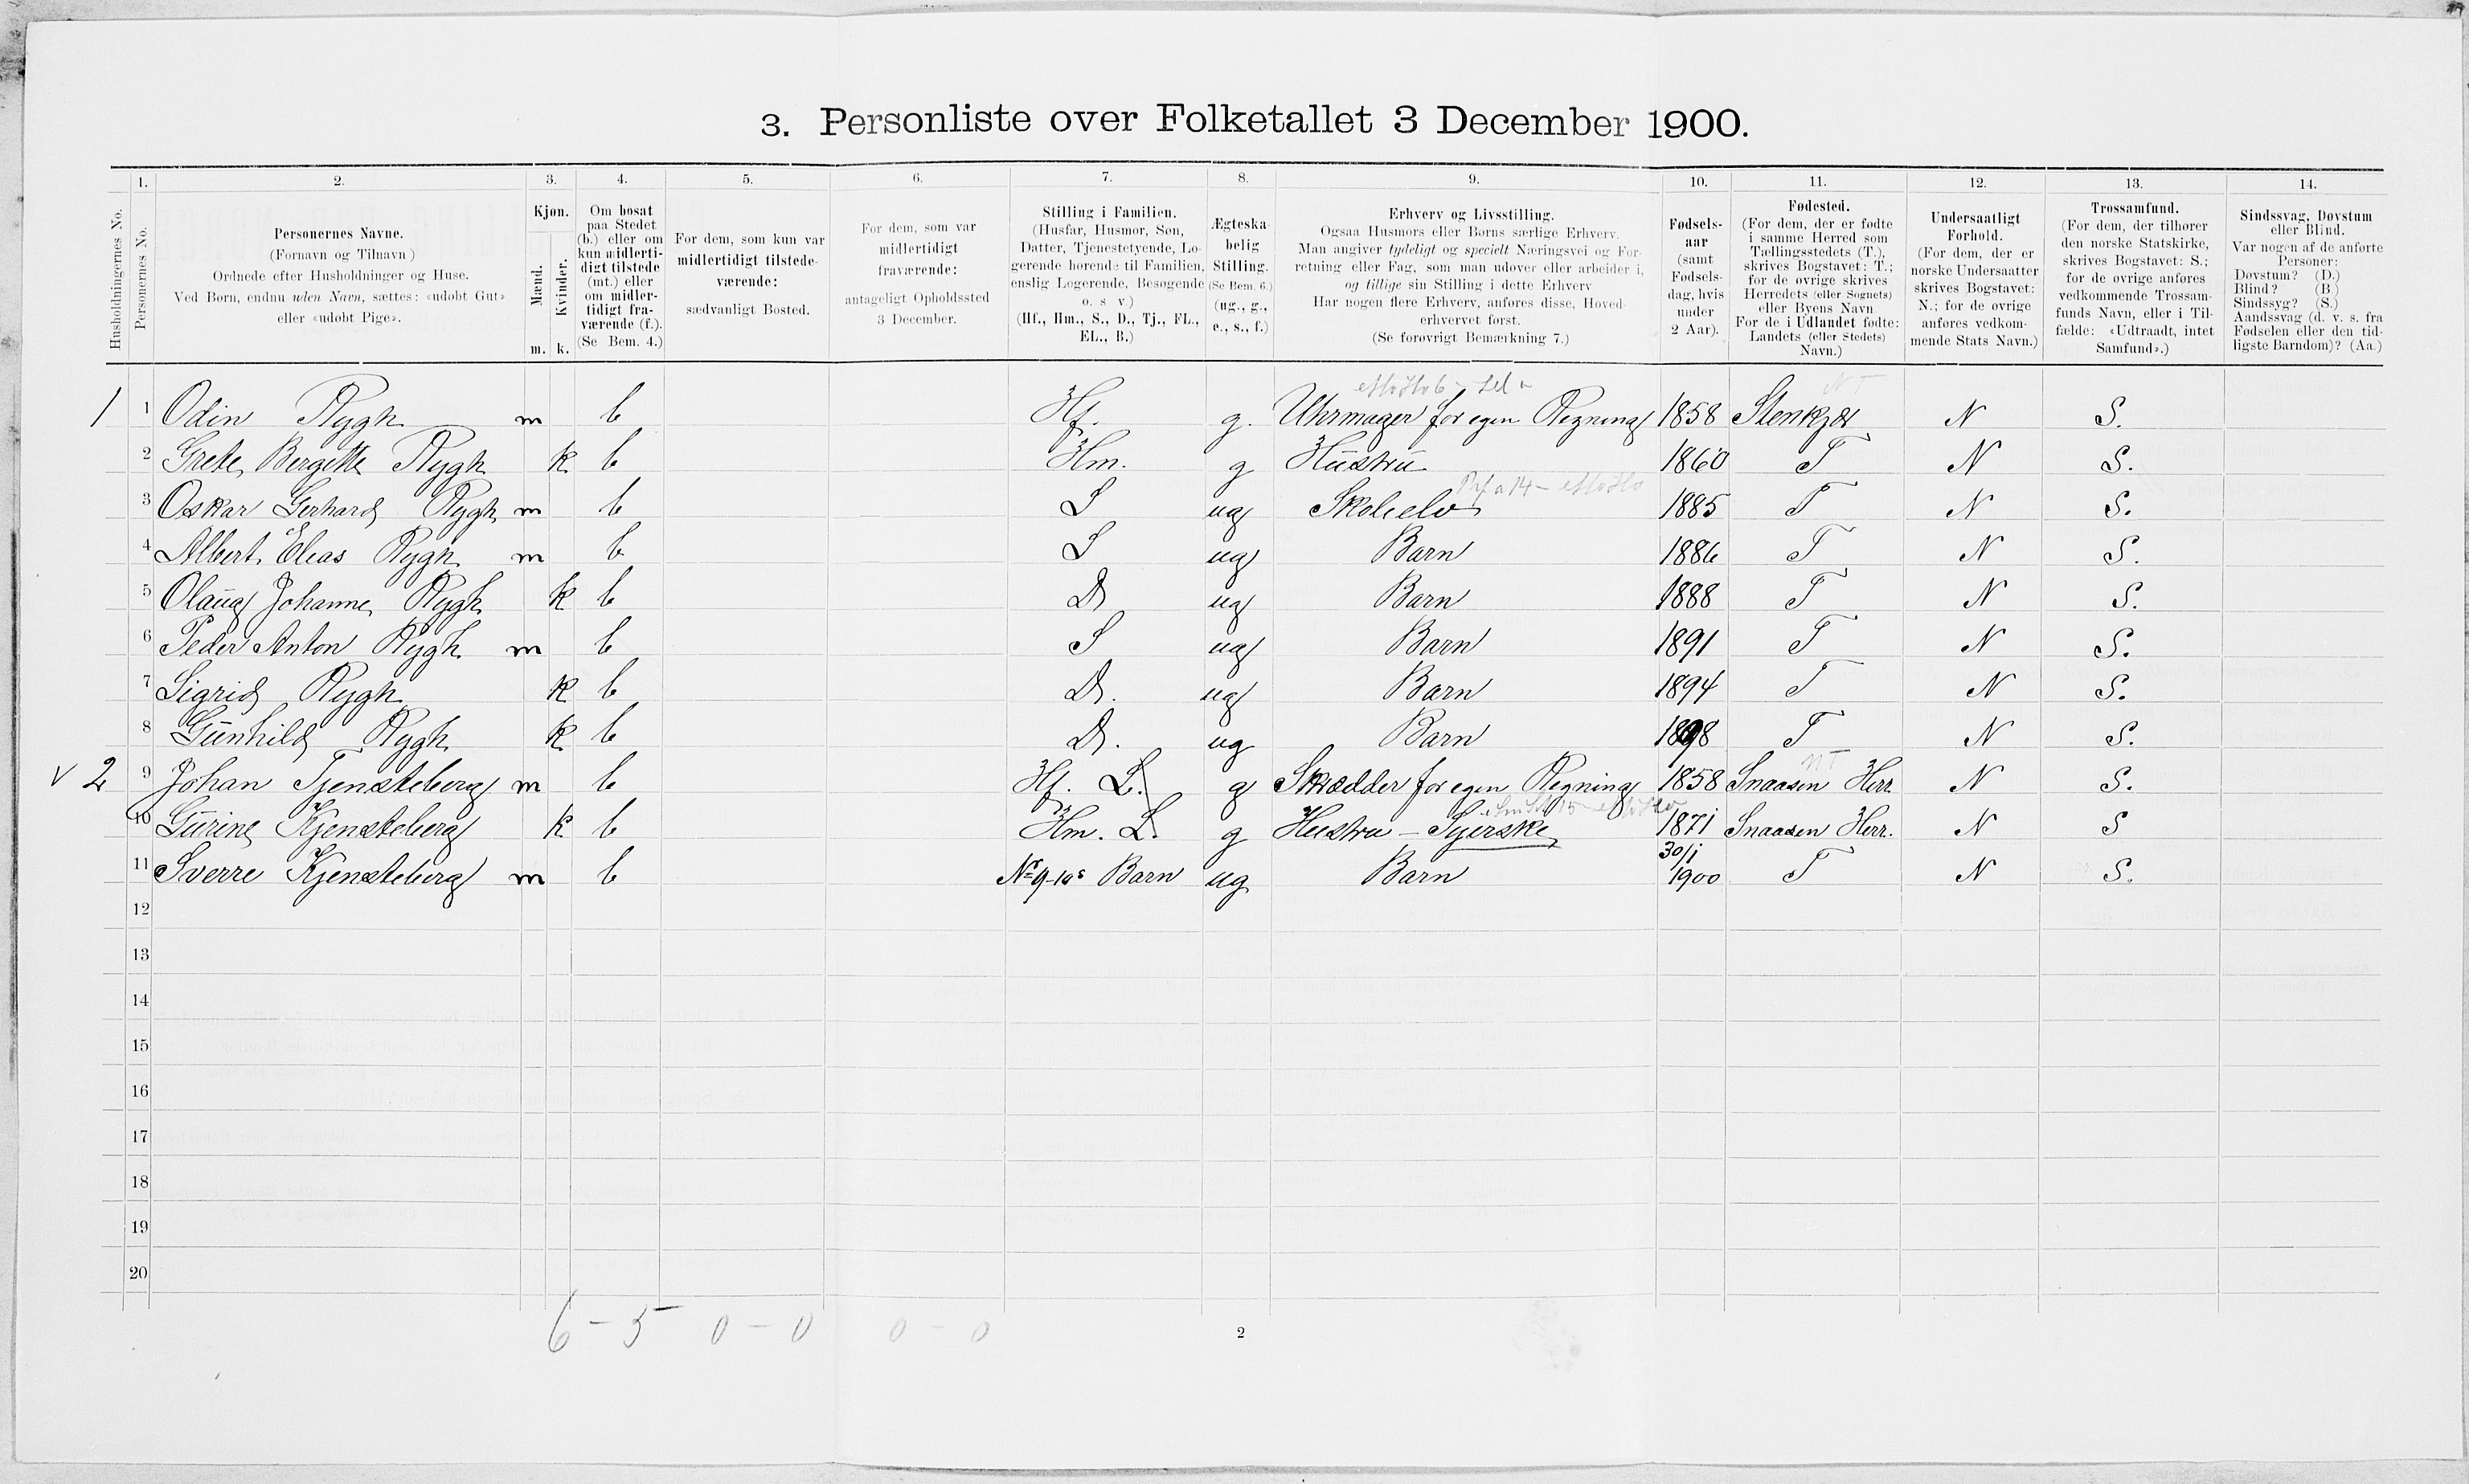 3. Personliste over Folketallet 3 December 1900.
1. 2. 3. 4. 5. 6. 7. 8. 9. 10. 11. 12. 13. 14.
Husholdningernes No.
Personernes No.
Personernes Navne.
(Fornavn og Tilnavn)
Ordnede efter Husholdninger og Huse.
Ved Børn, endnu uden Navn, sættes: «udøbt Gut»
eller «udøbt Pige».
Kjøn.
Mænd.
Kvinder.
m. k.
Om bosat
paa Stedet
(b.) eller om
kun midlerti-
digt tilstede
(mt.) eller
om midler-
tidigt fra-
værende (f.).
(Se Bem. 4.)
For dem, som kun var
midlertidigt tilstede-
værende:
sædvanligt Bosted.
For dem, som var
midlertidigt
fraværende:
antageligt Opholdssted
3 December.
Stilling i Familien.
(Husfar, Husmor, Søn,
Datter, Tjenestetyende, Lo-
gerende hørende til Familien,
enslig Logerende, Besøgende
o. s v.)
(Hf., Hm., S., D., Tj., FL.,
EL., B.)
Ægteska-
belig
Stilling.
(Se Bem. 6.)
(ug., g.,
e., s., f.)
Erhverv og Livsstilling.
Ogsaa Husmors eller Børns særlige Erhverv.
Man angiver tydeligt og specielt Næringsvei og For-
retning eller Fag, som man udøver eller arbeider i,
og tillige sin Stilling i dette Erhverv
Har nogen flere Erhverv, anføres disse, Hoved-
erhvervet først.
(Se forøvrigt Bemærkning 7.)
Fødsels-
aar
(samt
Fødsels-
dag, hvis
under
2 Aar).
Fødested.
(For dem, der er fødte
i samme Herred som
Tællingsstedets (T.),
skrives Bogstavet: T.;
for de øvrige skrives
Herredets (eller Sognets)
eller Byens Navn
For de i Udlandet fødte:
Landets (eller Stedets)
Navn.)
Undersaatligt
Forhold.
(For dem, der er
norske Undersaatter
skrives Bogstavet:
N.; for de øvrige
anføres vedkom-
mende Stats Navn.)
Trossamfund.
(For dem, der tilhører
den norske Statskirke,
skrives Bogstavet: S.;
for de øvrige anføres
vedkommende Trossam-
funds Navn, eller i Til-
fælde: «Udtraadt, intet
Samfund».)
Sindssvag, Døvstum
eller Blind.
Var nogen af de anførte
Personer:
Døvstum? (D.)
Blind? (B.)
Sindssyg? (S.)
Aandssvag (d. v. s. fra
Fødselen eller den tid-
ligste Barndom)? (Aa.)
NT
1 1 Odin Rygh m b Hf. g. Uhrmager for egen Regning 1858 Stenkjær N S.
2 Grete Bergitte Rygh k b Hm. g Hustru 1860 T N S.
3 Oskar Gerhard Rygh m b S ug Skoleelev 1885 T N S.
4 Albert Elias Rygh m b S ug Barn 1886 T N S.
5 Olaug Johanne Rygh k b D ug Barn 1888 T N S.
6 Peder Anton Rygh m b S ug Barn 1891 T N S.
7 Sigrid Rygh k b D. ug Barn 1894 T N S.
8 Gunhild Rygh k b D. ug Barn 1898 T N S.
NT
v 2 9 Johan Tjensteberg m b Hf. L. g Skrædder for egen Regning 1858 Snaasen Herr. N S.
10 Gurine Kjensteberg k b Hm. L. g Hustru - Syerske 1871 Snaasen Herr. N S
11 Sverre Kjensteberg m b No 9-10s Barn ug Barn 30/1 1900 T N S.
12
13
14
15
16
17
18
19
20
6 - 5 0 - 0 0 - 0
2